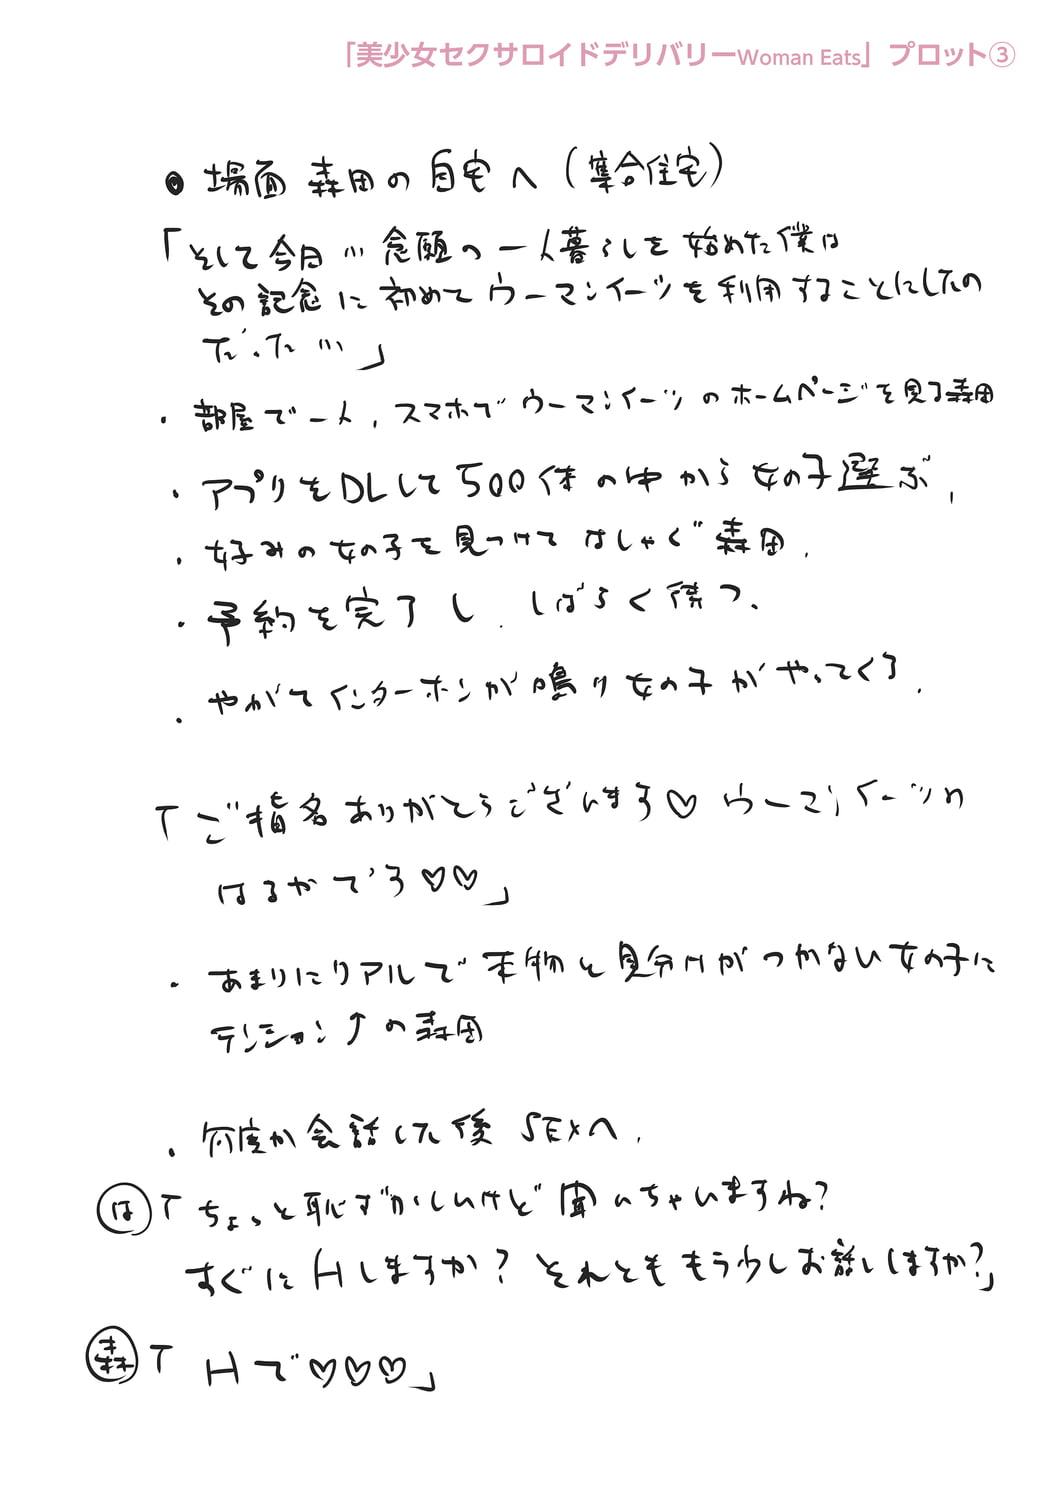 「美少女セクサロイドデリバリーWoman Eats」プロット③
● 場面 森田の自宅へ（集合住宅）
「そして今日… 念願の一人暮らしを始めた僕は
その記念に初めてウーマンイーツを利用することにしたの
だった…」
・部屋で一人、スマホでウーマンイーツのホームページを見る森田
・アプリをDLして500体の中から女の子選ぶ、
・好みの女の子を見つけてはしゃぐ森田、
・予約を完了し、しばらく待つ、
・やがてインターホンが鳴り女の子がやってくる、
「ご指名ありがとうございます♡ ウーマンイーツの
はるかでる♡♡」
・あまりにリアルで本物と見分けがつかない女の子に
テンション↑の森田
・何度か会話した後 SEXへ、
は「ちょっと恥ずかしいけど聞いちゃいますね?
すぐにHしますか? それとももう少しお話しますか?」
森「Hで♡♡♡」